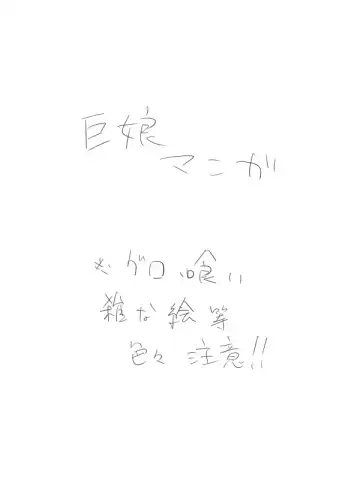 巨娘
マンガ
※グロ、喰い
雑な絵等
色々 注意!!